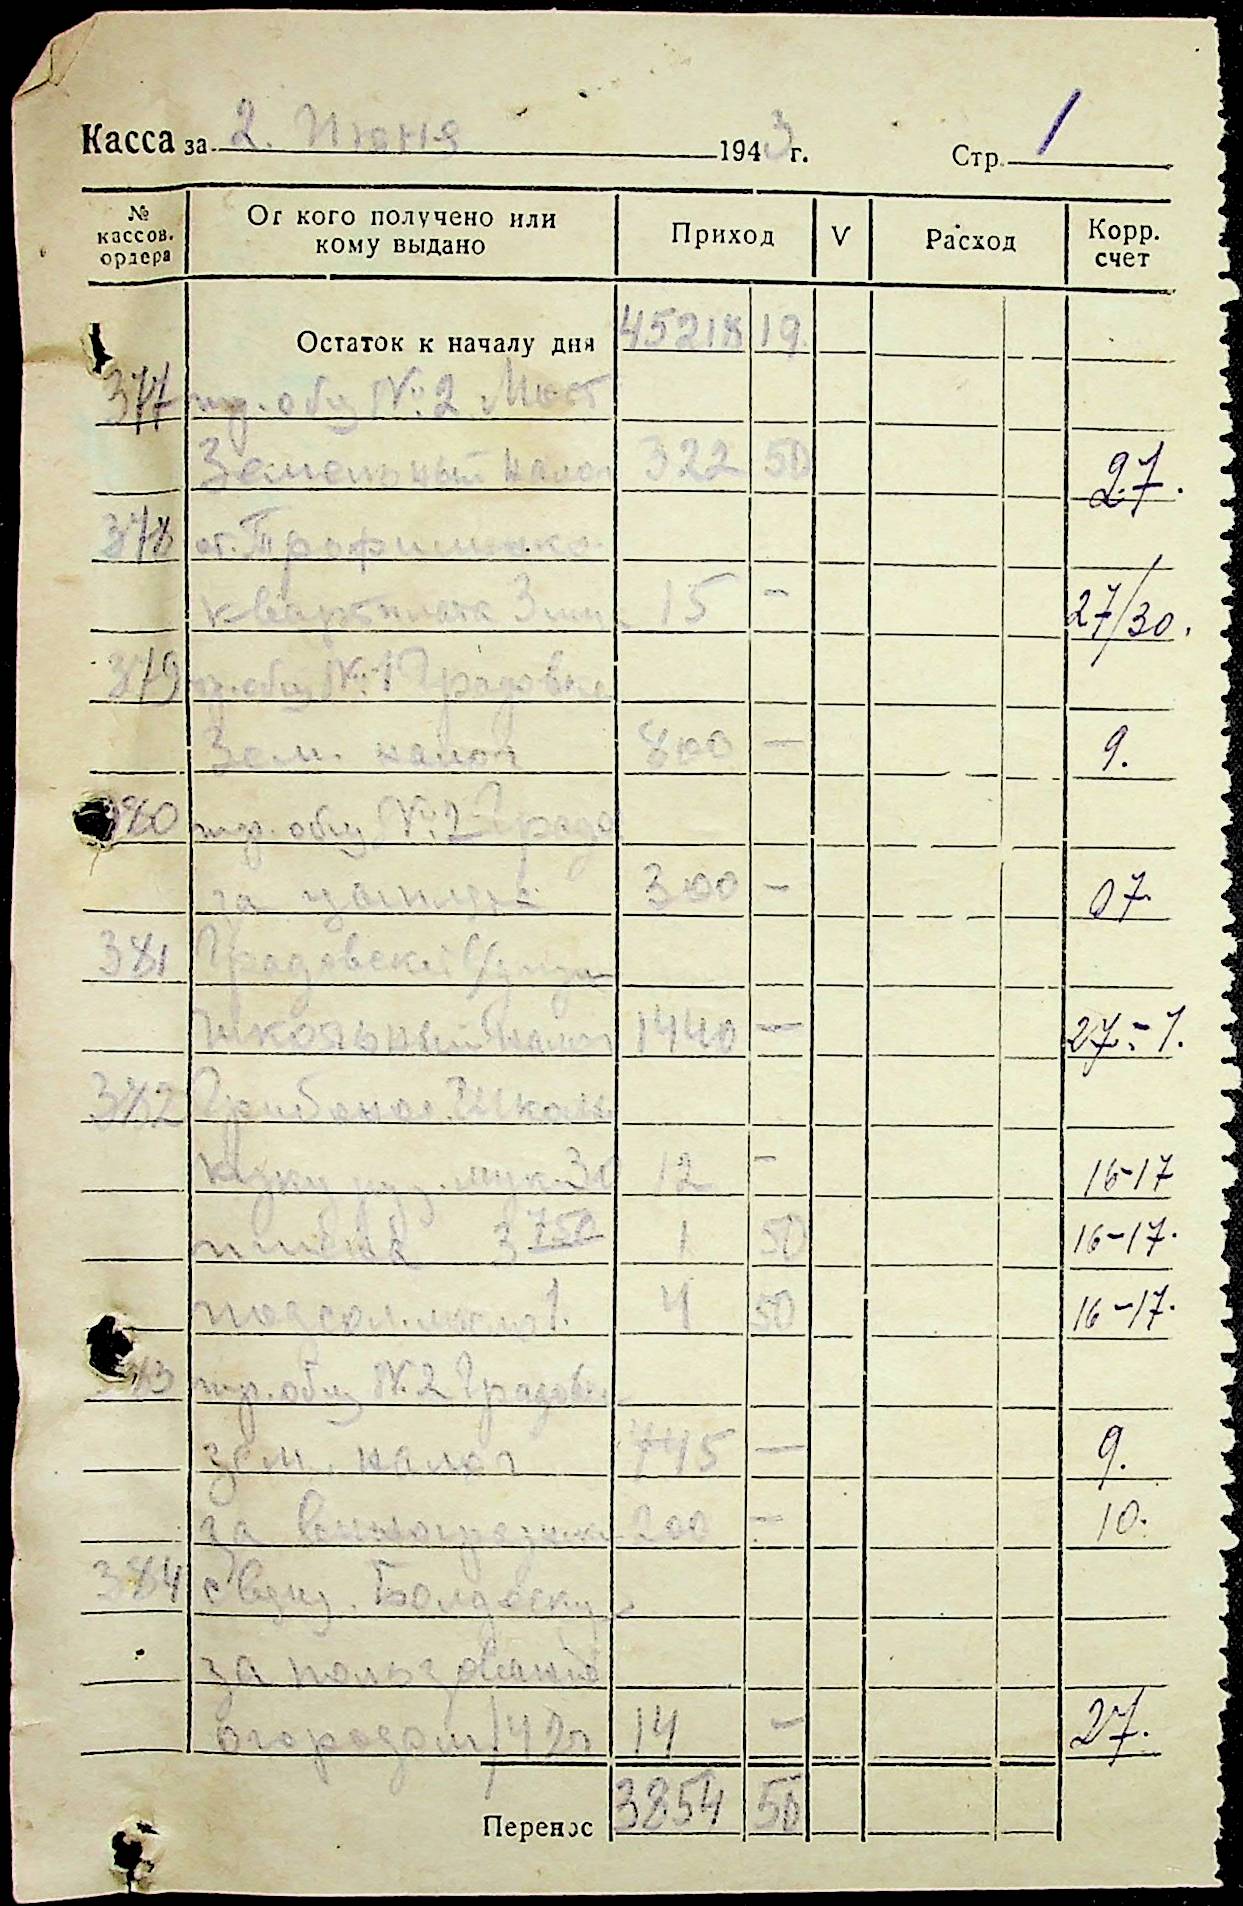 Касса за 2. Июня 1943 г. Стр. 1
№ кассов. ордера От кого получено или кому выдано Приход V Расход Корр. счет
Остаток к началу дня 45218 19.
377 тр. общ № 2 Мост
Земельный налог 322 50 27.
378 от.
квартплата 15 - 27/30.
379 тр. общ № 1 Градовка
Зем. налог 800 - 9.
380 тр. общ № 2 Градо
за 300 - 07.
381 Градовский
Школьный налог 1440 - 27-1.
382
кукуруз. мук 30 12 - 16-17
3 750 1 50 16-17.
подсол. масло 1. 4 50 16-17.
383 тр. общ № 2 Градовк.
зем. налог 745 - 9.
за виноградник 200 - 10.
384
за пользование
огородом 42г 14 - 27.
Перенос 3854 50